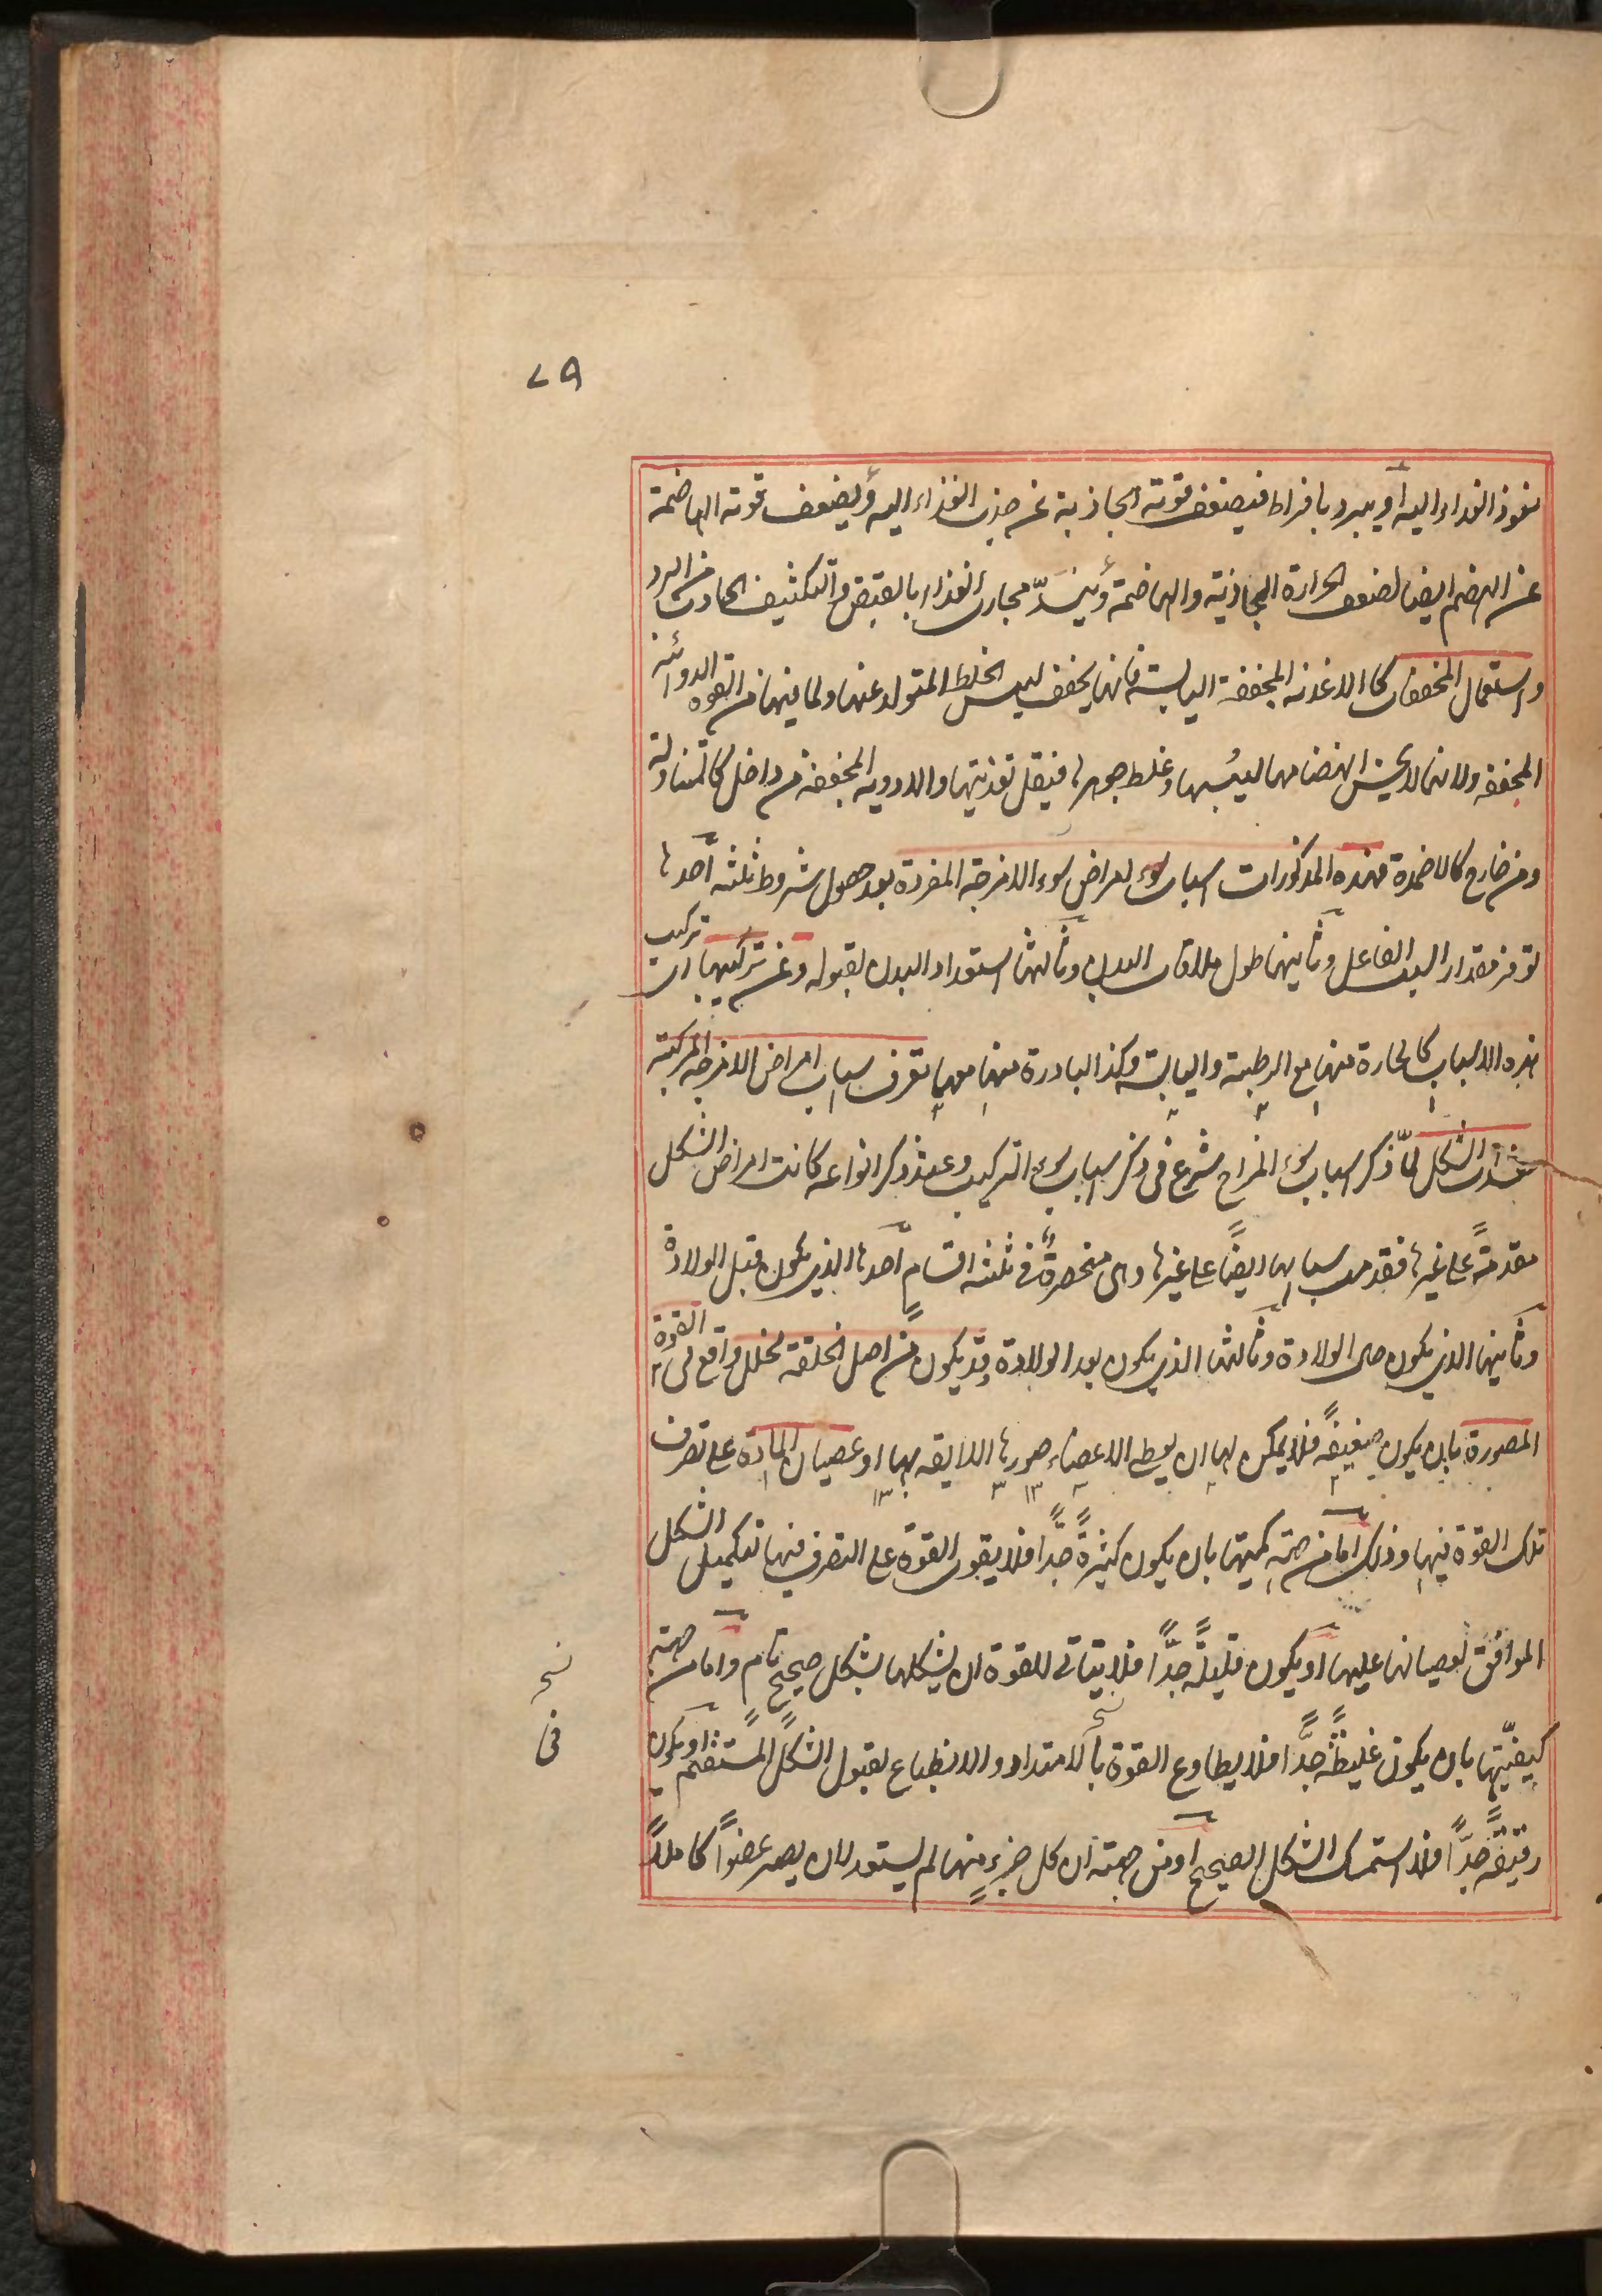 ٧٩
نفوذ الغذاء اليه أو يبرد بافراط فيضعف قوته الجاذبة عن جذب الغذاء اليه ويضعف قوته الهاضمة
عن الهضم ايضا لضعف الحرارة الجاذبة والهاضمة وينسدّ مجارى الغذاء بالقبض والتكثيف الحادث من البرد
واستعمال المجففات كالاغذية المجففة اليابسة فانها يجفف ليبس الخلط المتولد عنها ولما فيها من القوه الدوائية
المجففه ولانها لا يحسن انهضامها ليبسها وغلظ جوهرها فيقل تغذيتها والادوية المجففة من داخل كالمتناولة
ومن خارج كالاضمدة فهذه المذكورات اسباب لامراض سوء الامزجة المفردة بعد حصول شروط ثلثه أحدها
توفر مقدار السبب الفاعل وثانيها طول ملاقات البدن وثالثها استعداد البدن لقبوله ومن تركيبها اى تركيب
هذه الاسباب كالحارة منها مع الرطبة واليابسة وكذا الباردة منها معهما تعرف اسباب امراض الامزجه المركبة
مفسدات الشكل لمّا ذكر اسباب سوء المزاج شرع فى ذكر اسباب سوء التركيب وعند ذكر انواعه كانت امراض الشكل
مقدمةً على غيرها فقدم اسبابها ايضًا على غيرها وهى منحصرةٌ فى ثلثه اقسامٍ أحدها الذى يكون قبل الولادة
وثانيها الذى يكون حال الولادة وثالثها الذى يكون بعد الولادة وقد يكون من اصل الخلقة لخلل واقع فى القوة
المصورة بان يكون ضعيفةً فلا يمكن لها ان يعطى الاعضاء صورها اللايقه بها او عصيان المادة على تصرف
تلك القوة فيها وذلك أما من جهة كميتها بان يكون كثيرةً جدًّا فلا يقوى القوة على التصرف فيها لتكميل الشكل
الموافق لعصيانها عليها او يكون قليلةً جدًّا فلا يتاتى للقوة ان يشكلها بشكل صحيح تام واما من جهة
كيفيّتها بان يكون غليظةً جدًّا فلا يطاوع القوة بالامتداد والانطباع لقبول الشكل المستقيم او يكون
رقيقةً جدًّا فلا استمسك الشكل الصحيح او من جهة ان كل جزءٍ منها لم يستعد لان يصير عضواً كاملاً
نسخ
فى